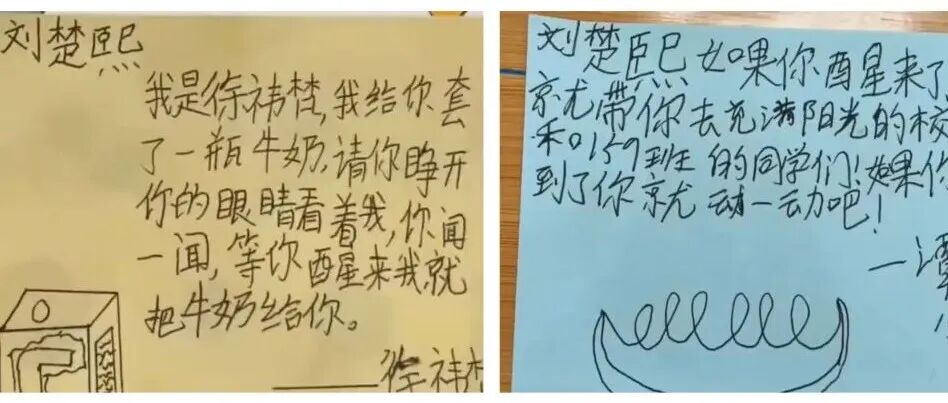 刘楚熙
我是徐祎梵,我给你套
了一瓶牛奶,请你睁开
你的眼睛看着我,你闻
一闻,等你酉星来我就
把牛奶给你。
——徐祎梵
刘楚熙如果你酉星来了
就带你去充满阳光的校
和2159班的同学们!如果你
到了你就动一动吧!
一潭